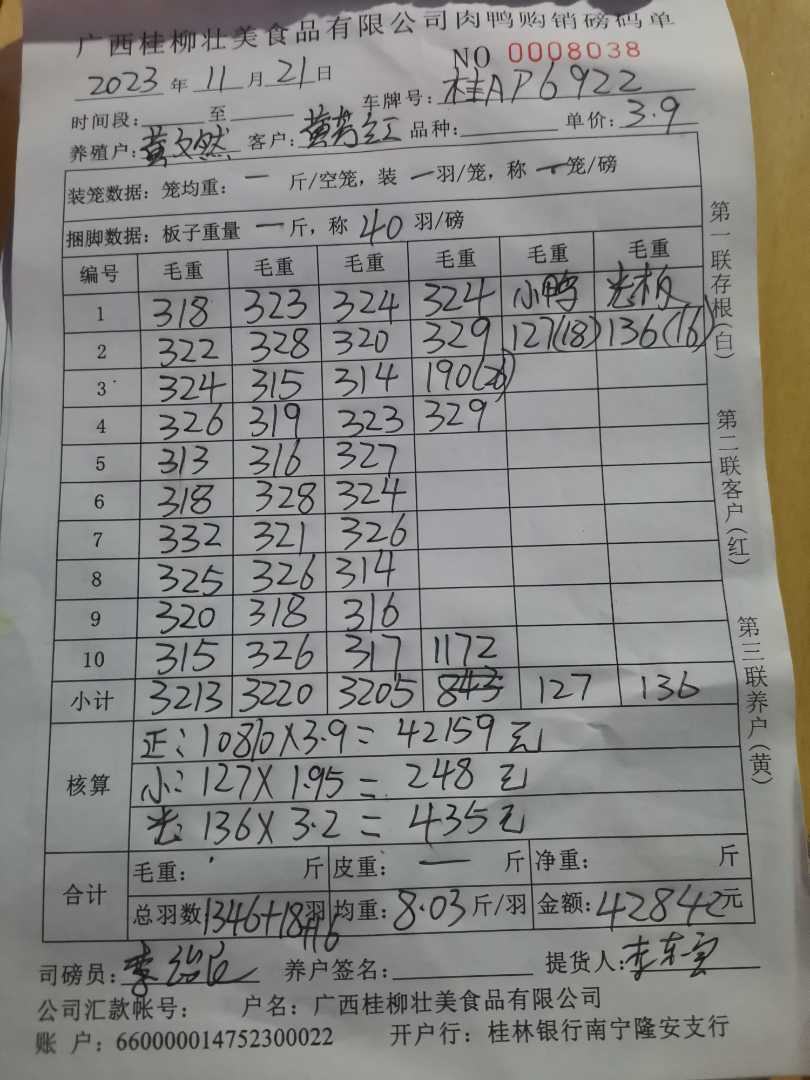 广西桂柳壮美食品有限公司肉鸭购销磅码单
NO 0008038
2023 年 11 月 21 日
车牌号: 桂AP6922
时间段: 至
养殖户: 黄文然 客户: 黄芳红 品种: 单价: 3.9
装笼数据: 笼均重: 一 斤/空笼, 装 一 羽/笼, 称 一 笼/磅
捆脚数据: 板子重量 一 斤, 称 40 羽/磅
编号 毛重 毛重 毛重 毛重 毛重 毛重
1 318 323 324 324 小鸭 光板
2 322 328 320 329 127(18) 136(16)
3 324 315 314 190(26)
4 326 319 323 329
5 313 316 327
6 318 328 324
7 332 321 326
8 325 326 314
9 320 318 316
10 315 326 317 1172
小计 3213 3220 3205 843 127 136
核算
正: 10810X3.9= 42159元
小: 127X1.95= 248元
光: 136X3.2= 435元
合计
毛重: 斤 皮重: 一 斤 净重: 斤
总羽数 1346+18羽 均重: 8.03 斤/羽 金额: 42842元
+16
司磅员: 养户签名: 提货人: 李东宝
公司汇款帐号: 户名: 广西桂柳壮美食品有限公司
账 户: 660000014752300022 开户行: 桂林银行南宁隆安支行
第一联存根(白)
第二联客户(红)
第三联养户(黄)